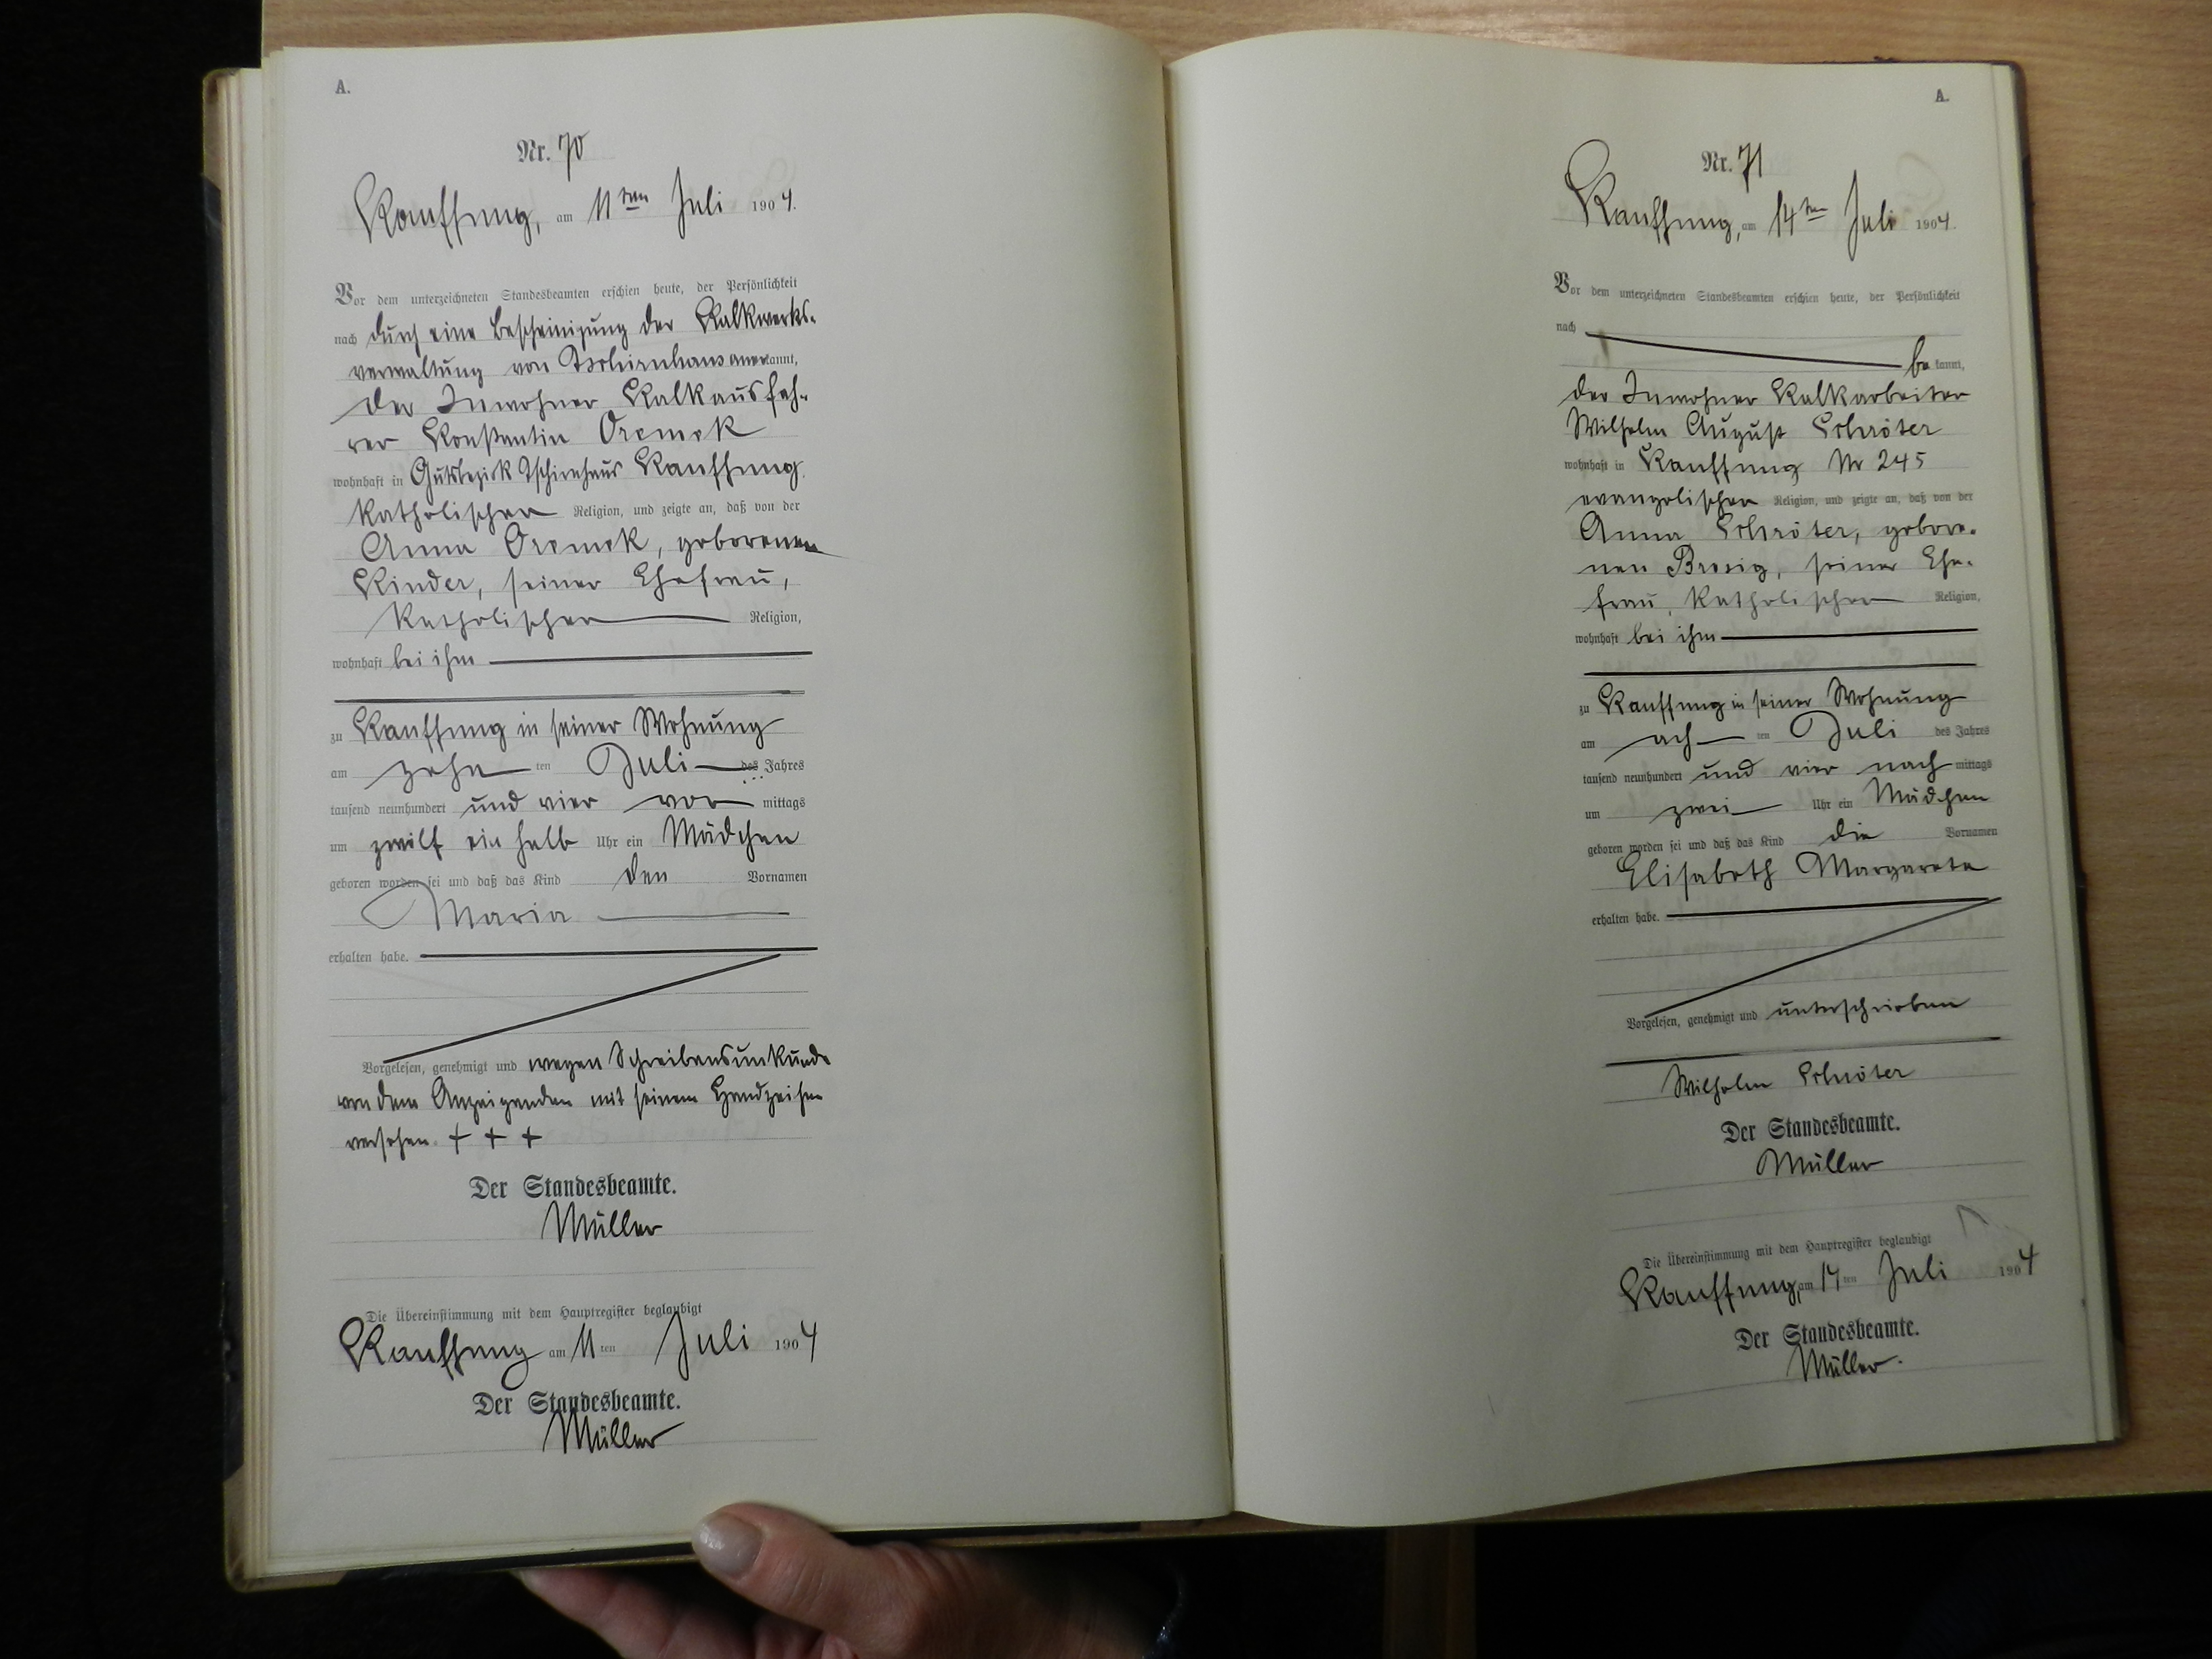 A.
Nr. 70
Kauffung, am 11ten Juli 1904.
Vor dem unterzeichneten Standesbeamten erschien heute, der Persönlichkeit
nach durch eine Bescheinigung der Kalkwerks-
verwaltung von Tschirnhaus anerkannt,
der Inwohner Kalkausfah-
rer Konstantin Oremek
wohnhaft in Gutsbezirk Tschirnhaus Kauffung.
katholischer Religion, und zeigte an, daß von der
Anna Oremek, geborenen
Kinder, seiner Ehefrau,
katholischer Religion,
wohnhaft bei ihm
zu Kauffung in seiner Wohnung
am zehn ten Juli des Jahres
tausend neunhundert und vier vor mittags
um zwölf ein halb Uhr ein Mädchen
geboren worden sei und daß das Kind den Vornamen
Maria
erhalten habe.
Vorgelesen, genehmigt und wegen Schreibensunkunde
von dem Anzeigenden mit seinem Handzeichen
versehen. + + +
Der Standesbeamte.
Müller
Die Übereinstimmung mit dem Hauptregister beglaubigt
Kauffung am 11 ten Juli 1904
Der Standesbeamte.
Müller
A.
Nr. 71
Kauffung, am 14ten Juli 1904.
Vor dem unterzeichneten Standesbeamten erschien heute, der Persönlichkeit
nach
be kannt,
der Inwohner Kalkarbeiter
Wilhelm August Schröter
wohnhaft in Kauffung Nr 245
evangelischer Religion, und zeigte an, daß von der
Anna Schröter, gebore-
nen Brosig, seiner Ehe-
frau, katholischer Religion,
wohnhaft bei ihm
zu Kauffung in seiner Wohnung
am ach ten Juli des Jahres
tausend neunhundert und vier nach mittags
um zwei Uhr ein Mädchen
geboren worden sei und daß das Kind die Vornamen
Elisabeth Margarete
erhalten habe.
Vorgelesen, genehmigt und unterschrieben
Wilhelm Schröter
Der Standesbeamte.
Müller
Die Übereinstimmung mit dem Hauptregister beglaubigt
Kauffung, am 14 ten Juli 1904
Der Standesbeamte.
Müller.